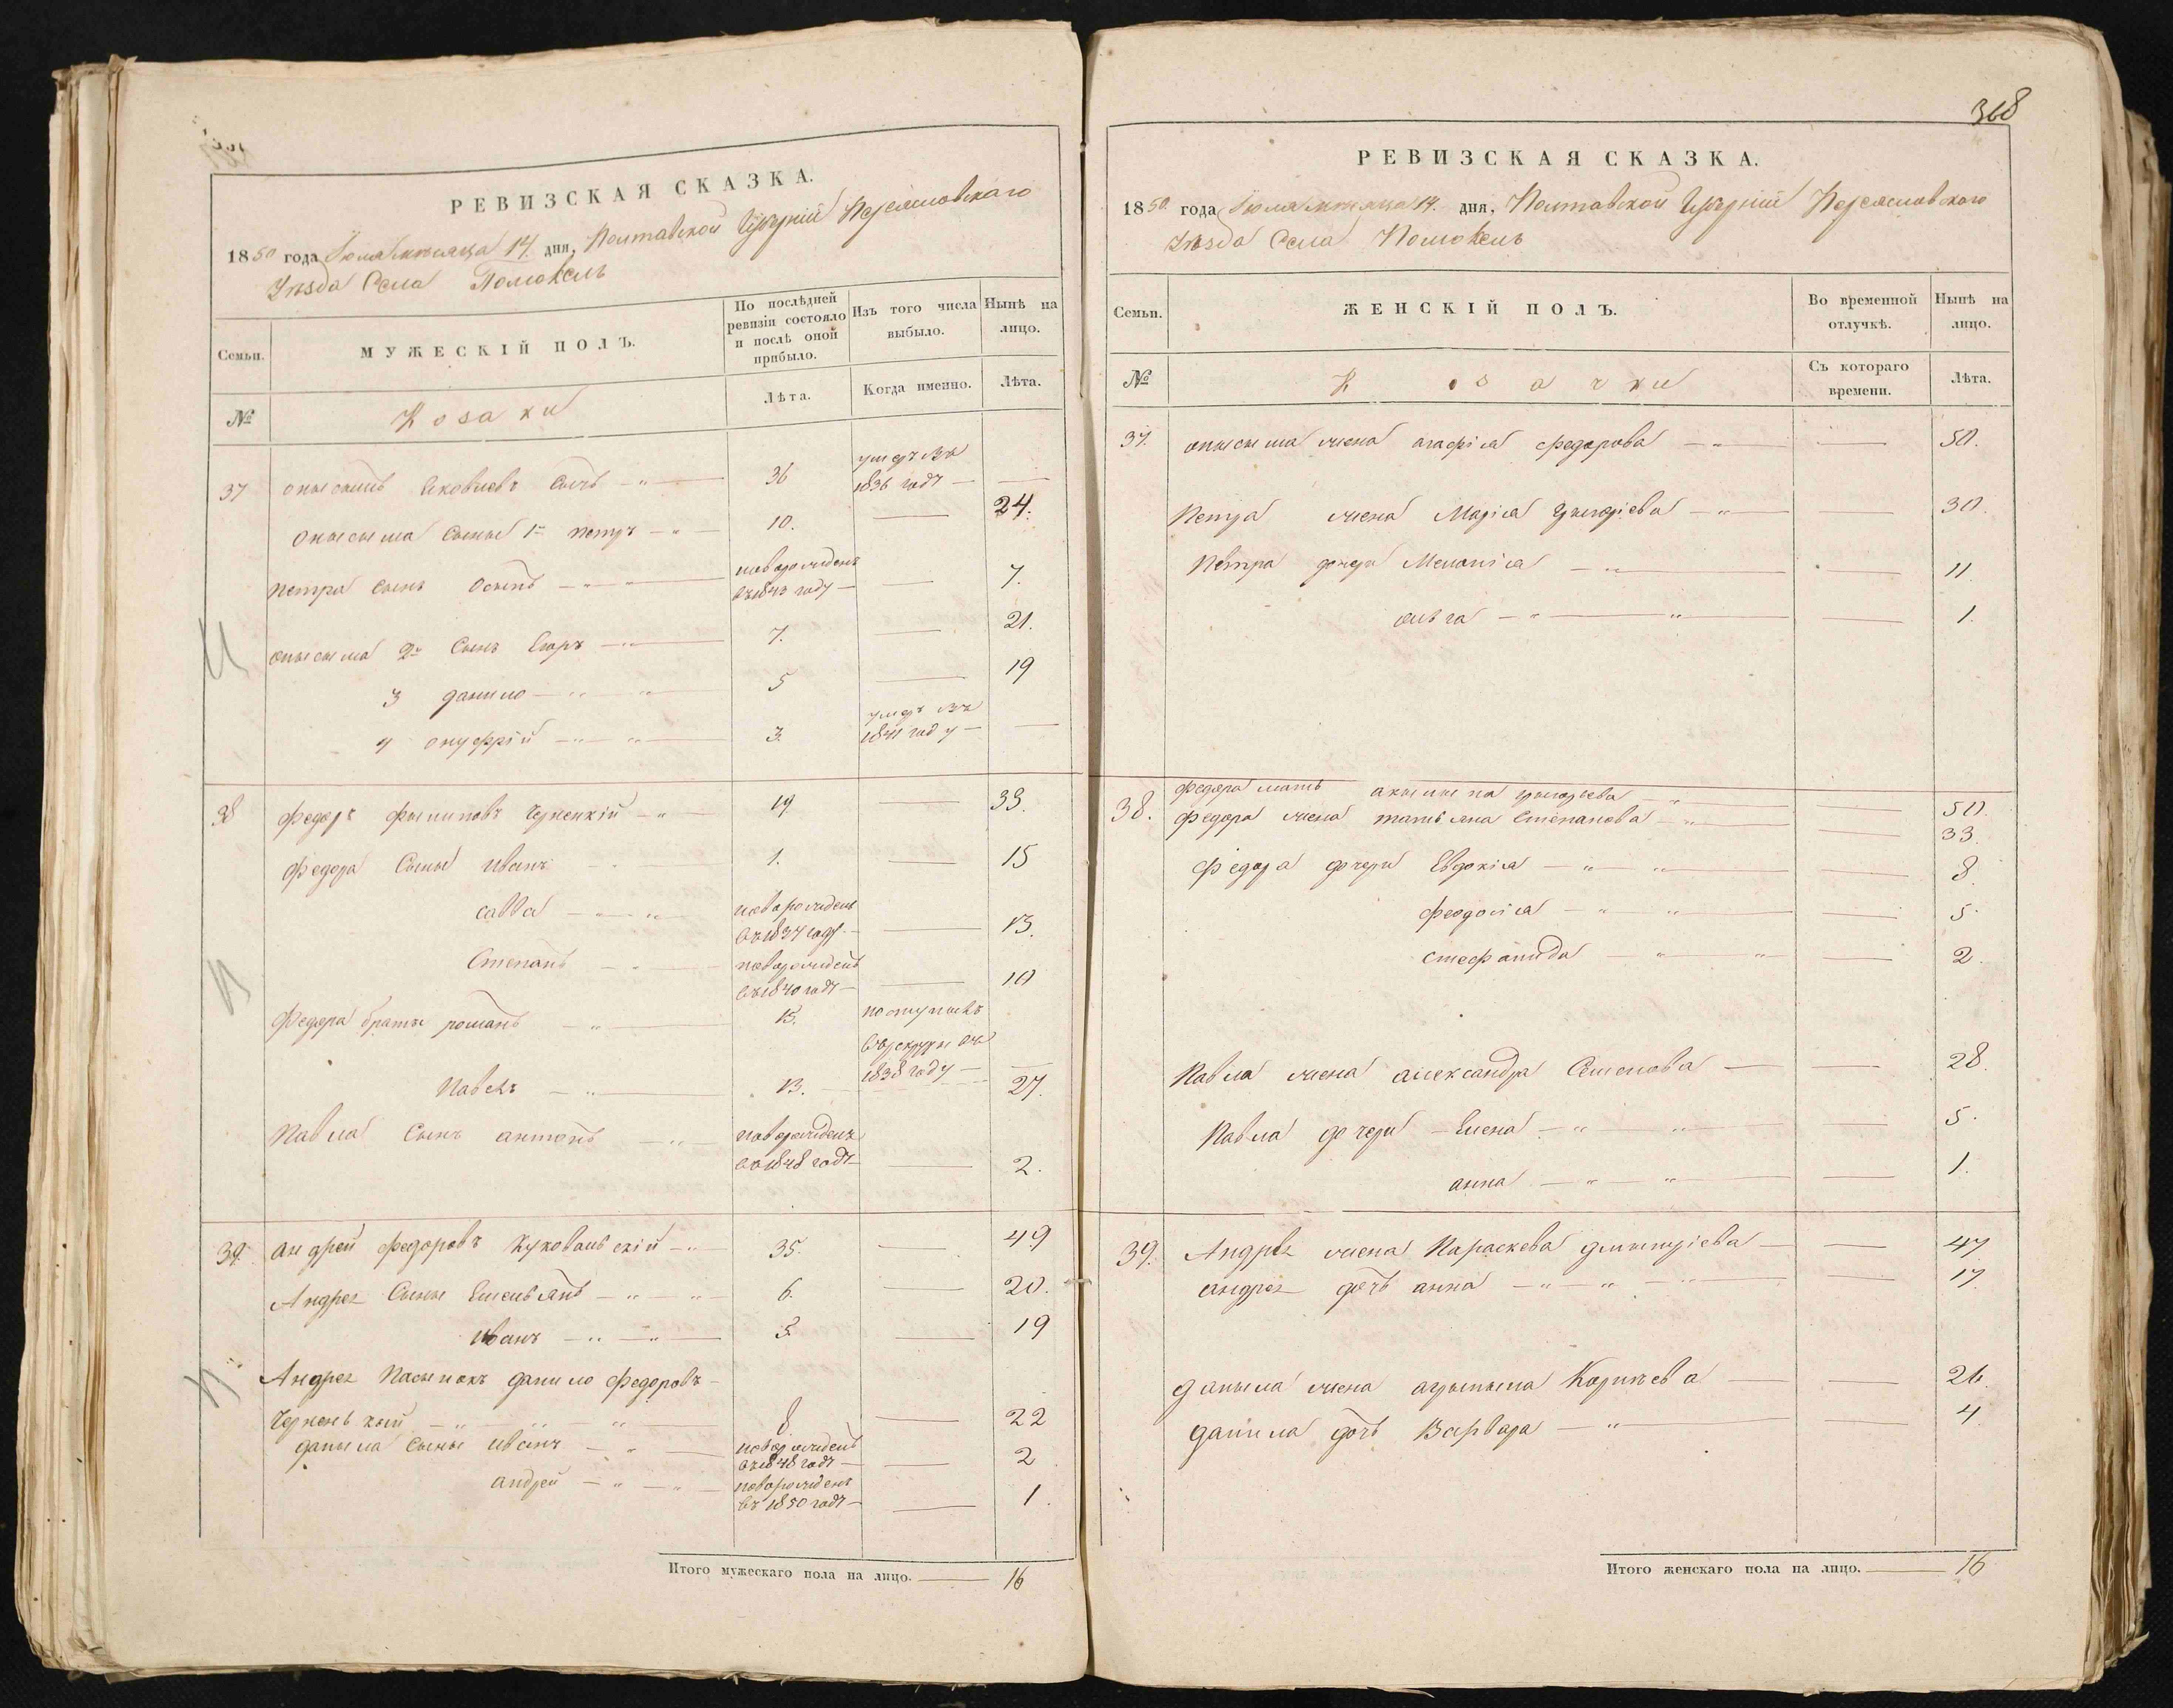 РЕВИЗСКАЯ СКАЗКА.
1850 года Июля месяца 14. дня, Полтавской Губерніи Переясловскаго
Уезда Села Помокель
Семьи.
МУЖЕСКІЙ ПОЛЪ.
По послѣдней
ревизіи состояло
и послѣ оной
прибыло.
Изъ того числа
выбыло.
Нынѣ на
лицо.
№
Козаки
Лѣта.
Когда именно.
Лѣта.
37 Онысымъ Яковлевъ 36 умеръ въ
1836 году —
Онысыма Сыны 1й петръ 10. 24.
Петра сынъ Осыпъ новорожденъ
въ 1843 году — 7.
Онысыма 2й Сынъ Егоръ 7. 21.
3 данило 5 19
4 онуфрій 3. умеръ въ
1841 году —
38 Федоръ Филиповъ Черненкій 19. 33.
Федора Сыны Иванъ 1. 15
савва новорожденъ
въ 1837 году 13.
Степанъ новорожденъ
въ 1840 году 10
Федора братья романъ 15. поступилъ
въ рекруты въ
1838 году —
Павелъ 13. 27.
Павла Сынъ антонъ новорожденъ
въ 1848 году 2.
39. Андрей Федоровъ 35. 49
Андрея Сыны Емельянъ 6. 20.
Иванъ 5. 19
Андрея Пасынокъ данило Федоровъ
8 22
данила сыны Иванъ новорожденъ
въ 1848 году 2
андрей новорожденъ
въ 1850 году 1.
Итого мужескаго пола на лицо. 16
368
РЕВИЗСКАЯ СКАЗКА.
1850 года Июля месяца 14. дня, Полтавской Губерніи Переясловскаго
Уезда Села Помокель
Семьи.
ЖЕНСКІЙ ПОЛЪ.
Во временной
отлучкѣ.
Нынѣ на
лицо.
№
Козачки
Съ котораго
времени.
Лѣта.
37. Онысыма жена агафія Федорова 50.
Петра жена Марія Григоріева 30.
Петра дочери Меланія 11.
ольга 1.
38. Федора мать акылына григорьева 50.
Федора жена татьяна Степанова 33.
Федора дочери Евдокія 8.
Феодосія 5.
стефанида 2.
Павла жена александра Семенова 28.
Павла дочери Елена 5.
анна 1.
39. Андрея жена Параскева дмытріева 47
андрея дочь анна 17
данила жена 26.
данила дочь Варвара 4.
Итого женскаго пола на лицо. 16